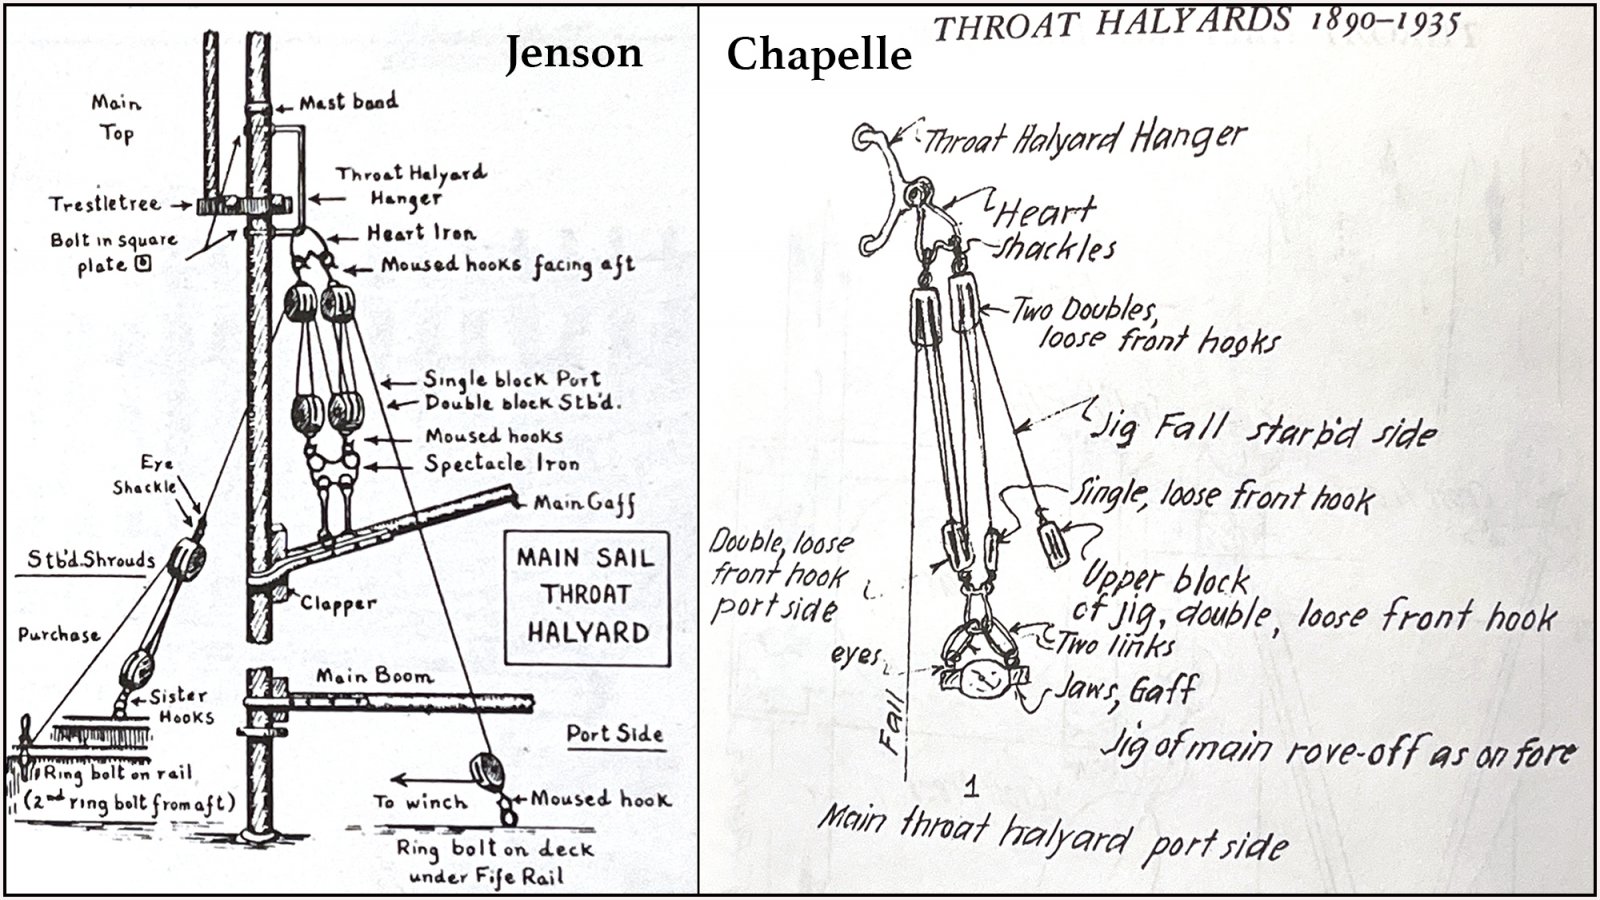 Jenson
Main
Top
Mast band
Throat Halyard
Hanger
Trestletree
Heart Iron
Bolt in square
plate
Moused hooks facing aft
Single block Port
Double block Stb'd.
Moused hooks
Spectacle Iron
Eye
Shackle
Main Gaff
MAIN SAIL
THROAT
HALYARD
Stb'd. Shrouds
Clapper
Purchase
Main Boom
Sister
Hooks
Port Side
Ring bolt on rail
(2nd ring bolt from aft)
To winch
Moused hook
Ring bolt on deck
under Fife Rail
Chapelle
THROAT HALYARDS 1890–1935
Throat Halyard Hanger
Heart
shackles
Two Doubles,
loose front hooks
Jig Fall starb'd side
Single, loose front hook
Double, loose
front hook
port side
Upper block
of jig, double, loose front hook
Two links
eyes
Jaws, Gaff
Fall
Jig of main rove-off as on fore
1
Main throat halyard port side